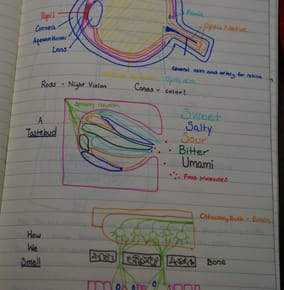 Pupil
Cornea
Aqueous Humor
Lens
Fovea
Optic Nerve
Central vein and artery for retina
Optic disk
Rods - Night Vision
Cones - color!
Sensory neurons
A
Tastebud
Sweet
Salty
Sour
Bitter
Umami
Food Molecules
Olfactory Bulb - Brain
How
We
Smell
Bone